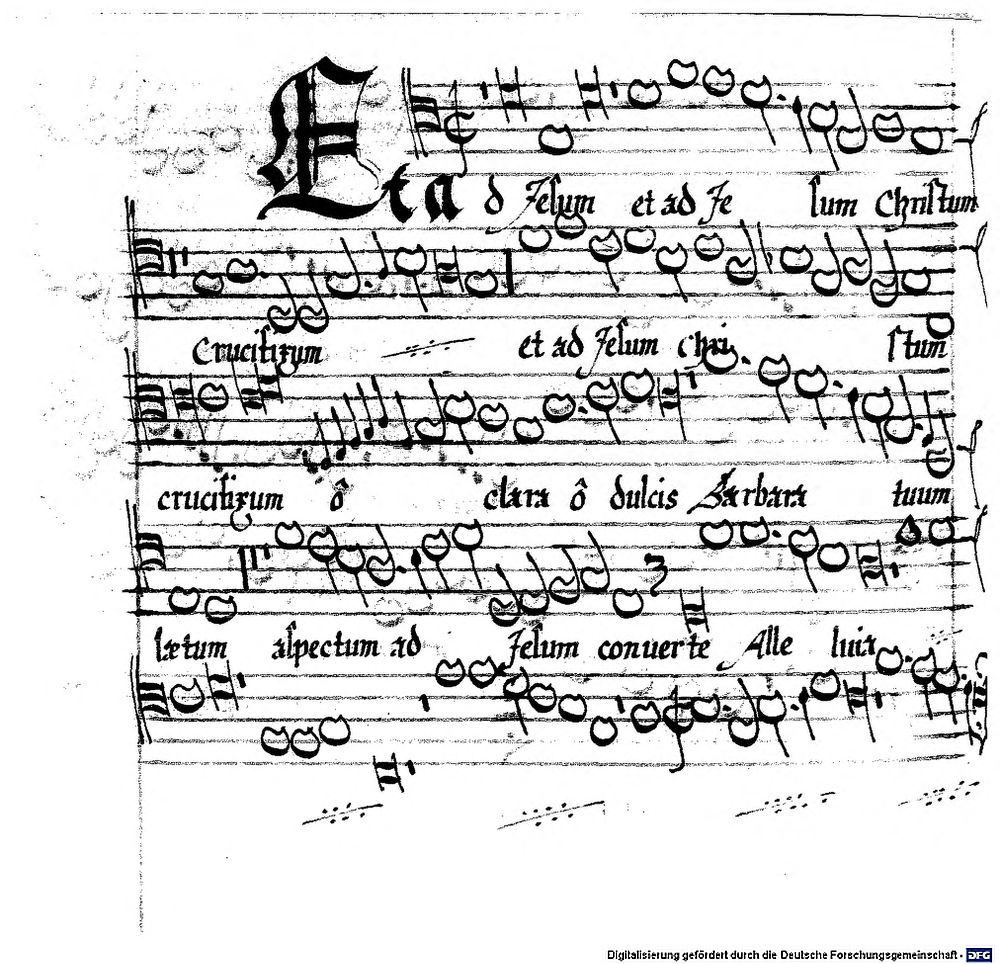 Et ad Jesum et ad Je sum Christum
Crucifixum et ad Jesum Chri stum
crucifixum ô clara ô dulcis Barbara tuum
lætum aspectum ad Jesum conuerte Alle luia
Digitalisierung gefördert durch die Deutsche Forschungsgemeinschaft - DFG